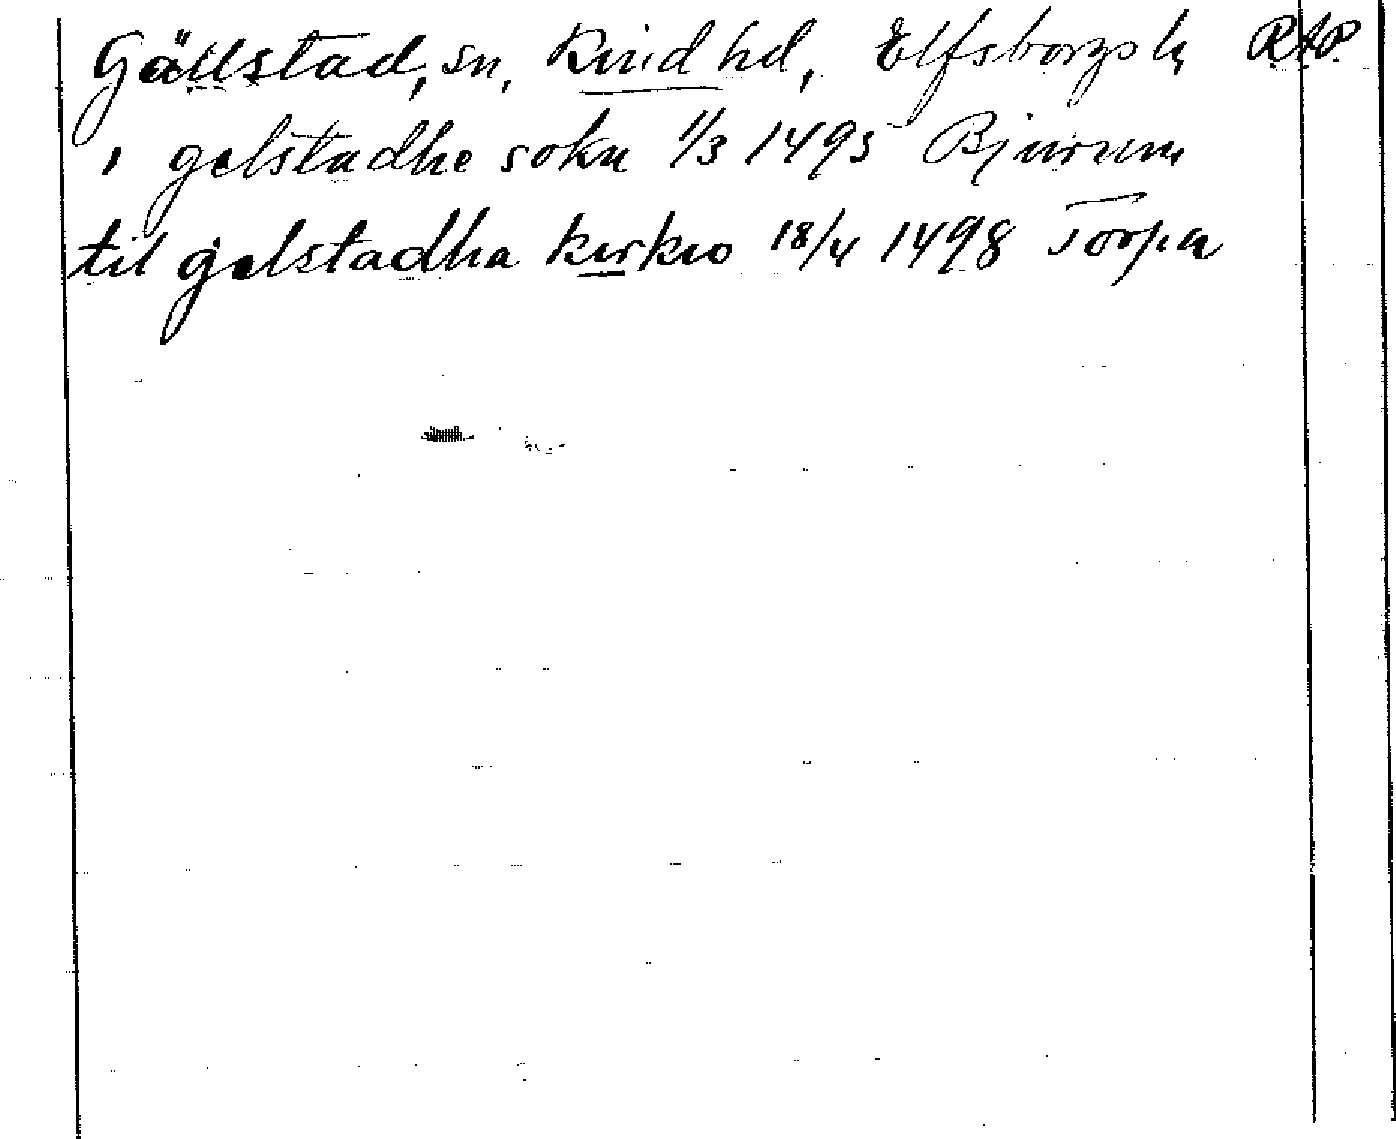 Gällstad, sn, Kind hd, Elfsborgs l, RAP
i gelstadhe sokn 1/3 1495 Bjurum
til gelstadha kirkio 18/4 1498 Torpa